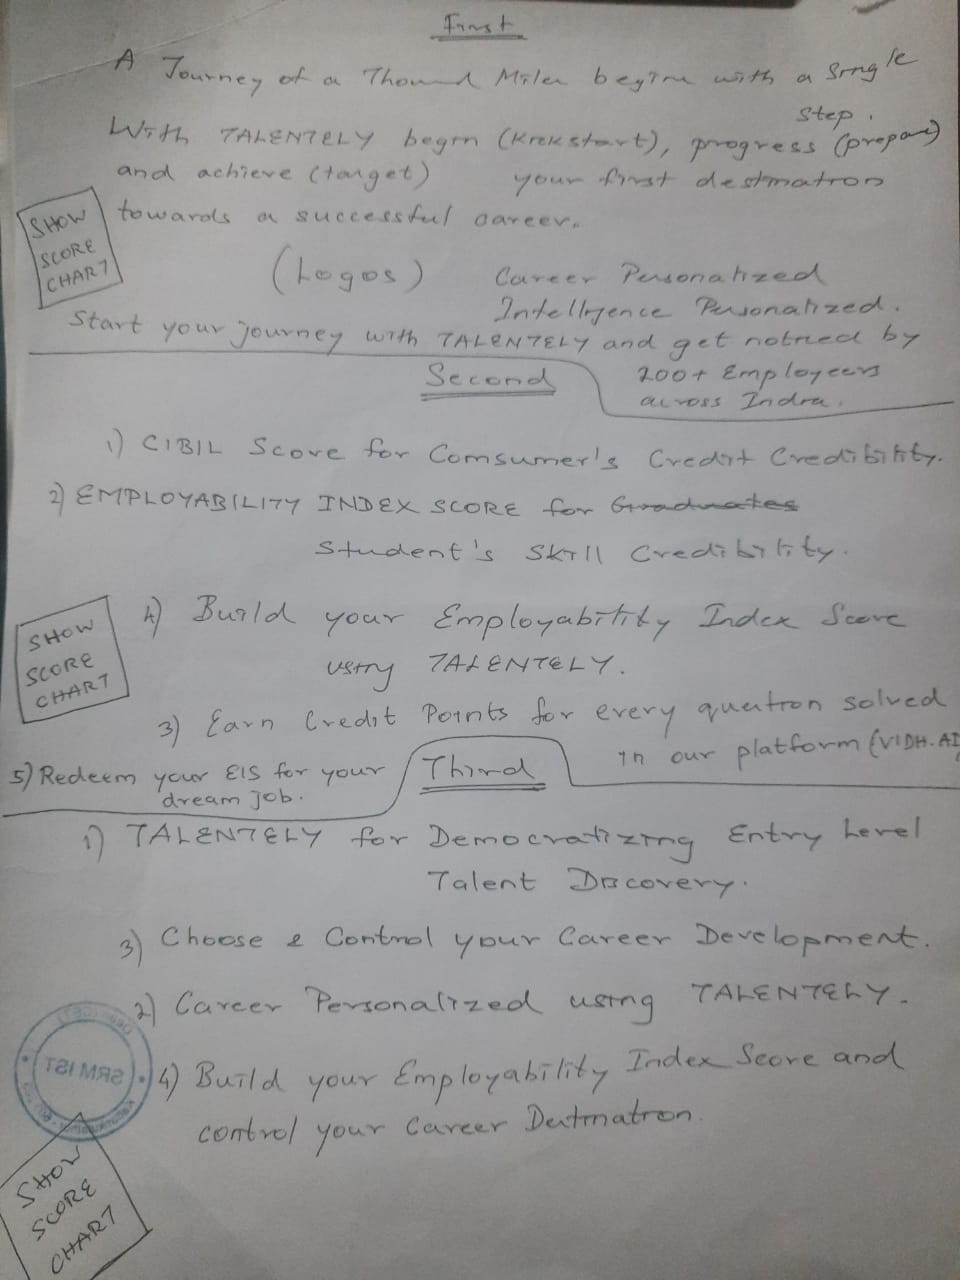 First
A Journey of a Thound Miles begins with a Single
step.
With TALENTELY begin (kickstart), progress (prepare)
and achieve (target) your first destination
towards a successful career.
SHOW
SCORE
CHART
(Logos)
Career Personalized
Intelligence Personalized.
Start your journey with TALENTELY and get noticed by
200+ Employeers
across India.
Second
1) CIBIL Score for Comsumer's Credit Credibility.
2) EMPLOYABILITY INDEX SCORE for Graduates
Student's Skill Credibility.
SHOW
SCORE
CHART
4) Build your Employability Index Score
using TALENTELY.
3) Earn Credit Points for every question solved
in our platform (VIDH.AI
5) Redeem your EIS for your
dream job.
Third
1) TALENTELY for Democratizing Entry Level
Talent Discovery.
3) Choose & Control your Career Development.
2) Career Personalized using TALENTELY.
SRM IST
4) Build your Employability Index Score and
control your Career Destination.
SHOW
SCORE
CHART